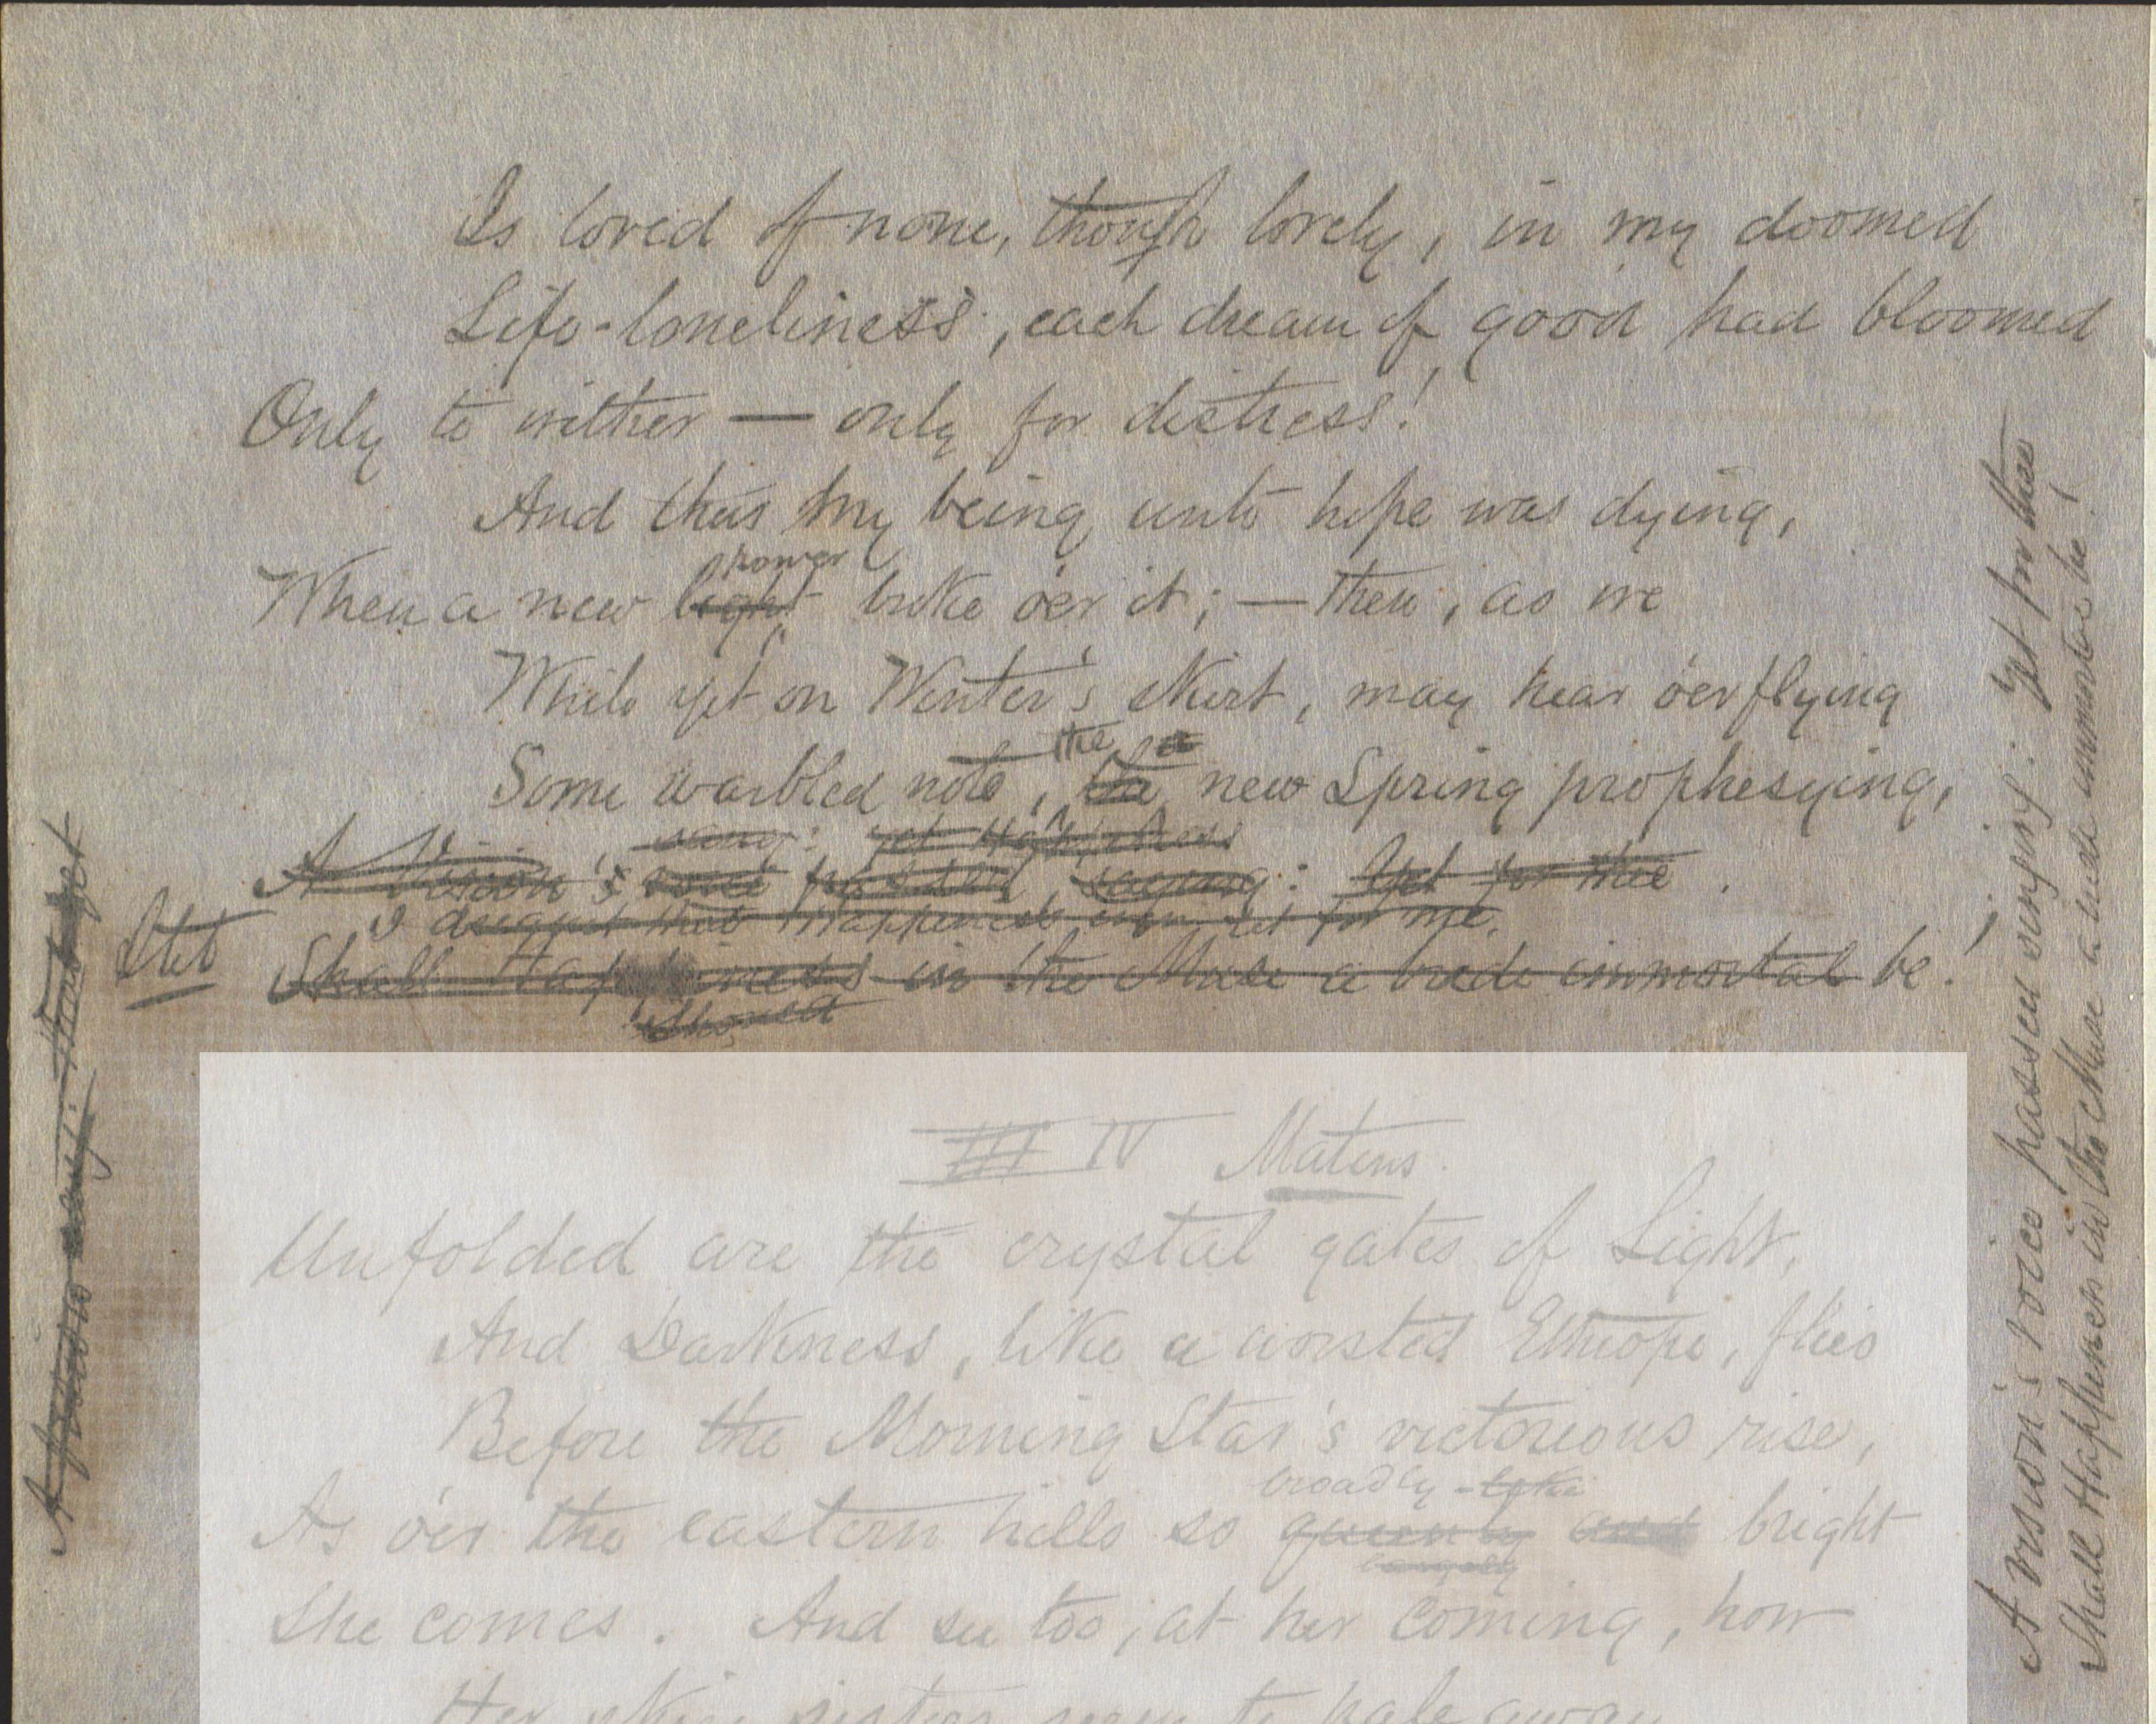 Is loved of none, though lovely, in my doomed
Life-loneliness, each dream of good had bloomed
Only to wither — only for distress!
And thus my being unto hope was dying,
power
When a new light broke o'er it; — then, as we
While yet on Winter's skirt, may hear o'erflying
the a
Some warbled note, the new Spring prophesying,
song: yet Happiness
A Vision's voice passed, saying: Yet for thee.
I dreamt that Happiness even yet for me,
Stet
Shall Happiness in the Muse a bride immortal be!
Should
III IV Matins.
Unfolded are the crystal gates of Light,
And Darkness, like a worsted Ethiope, flies
Before the Morning Star's victorious rise,
broadly-like
As o'er the eastern hills so queenly and bright
largely
She comes. And see too, at her coming, how
Her skiey sisters seem to pale away
A vision's voice passed singing: Yet for thee
Shall Happiness in the Muse a bride immortal be!